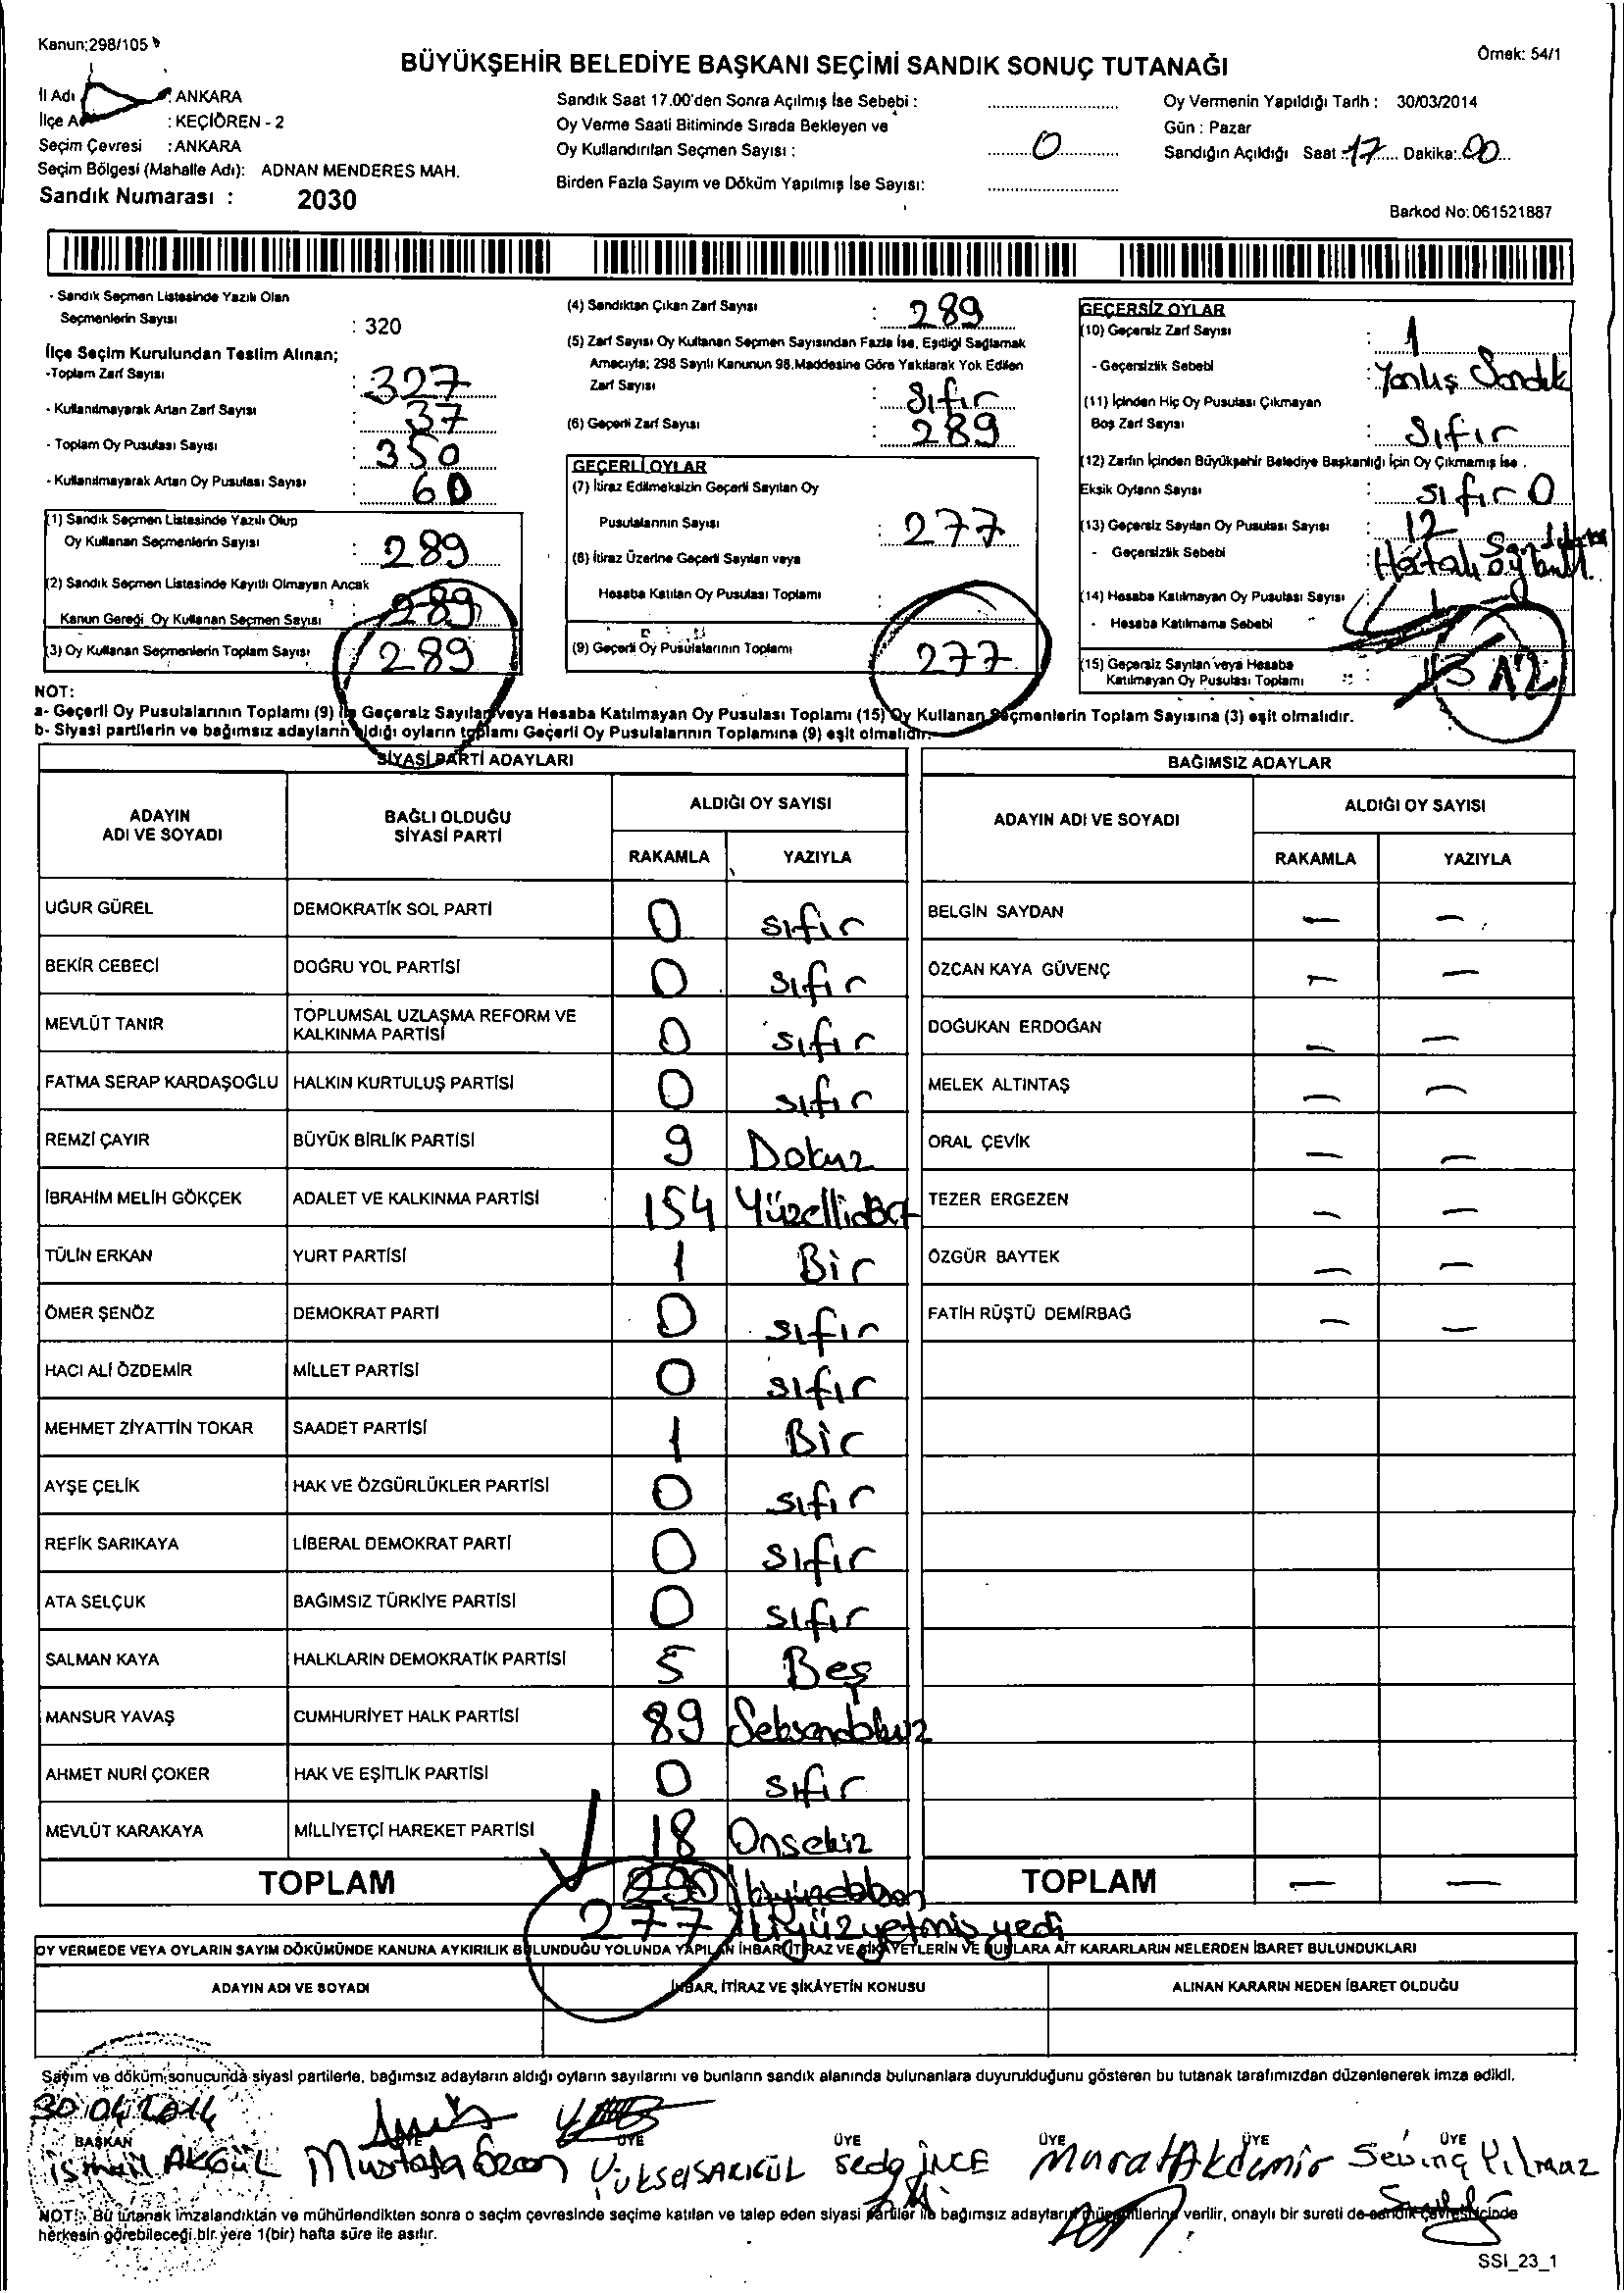 Kanun:298/105
Örnek: 54/1
BÜYÜKŞEHİR BELEDİYE BAŞKANI SEÇİMİ SANDIK SONUÇ TUTANAĞI
İl Adı : ANKARA
İlçe A : KEÇİÖREN - 2
Seçim Çevresi : ANKARA
Seçim Bölgesi (Mahalle Adı): ADNAN MENDERES MAH.
Sandık Numarası : 2030
Sandık Saat 17.00'den Sonra Açılmış İse Sebebi :
Oy Verme Saati Bitiminde Sırada Bekleyen ve
Oy Kullandırılan Seçmen Sayısı : 0
Birden Fazla Sayım ve Döküm Yapılmış İse Sayısı:
Oy Vermenin Yapıldığı Tarih : 30/03/2014
Gün : Pazar
Sandığın Açıldığı Saat : 17 Dakika: 00
Barkod No: 061521887
- Sandık Seçmen Listesinde Yazılı Olan
Seçmenlerin Sayısı : 320
İlçe Seçim Kurulundan Teslim Alınan;
-Toplam Zarf Sayısı : 327
- Kullanılmayarak Artan Zarf Sayısı : 37
- Toplam Oy Pusulası Sayısı : 350
- Kullanılmayarak Artan Oy Pusulası Sayısı : 60
(1) Sandık Seçmen Listesinde Yazılı Olup
Oy Kullanan Seçmenlerin Sayısı : 289
(2) Sandık Seçmen Listesinde Kayıtlı Olmayan Ancak
Kanun Gereği Oy Kullanan Seçmen Sayısı 289
(3) Oy Kullanan Seçmenlerin Toplam Sayısı 289
(4) Sandıktan Çıkan Zarf Sayısı : 289
(5) Zarf Sayısı Oy Kullanan Seçmen Sayısından Fazla İse, Eşitliği Sağlamak
Amacıyla; 298 Sayılı Kanunun 98.Maddesine Göre Yakılarak Yok Edilen
Zarf Sayısı : Sıfır
(6) Geçerli Zarf Sayısı : 289
GEÇERLİ OYLAR
(7) İtiraz Edilmeksizin Geçerli Sayılan Oy
Pusulalarının Sayısı : 277
(8) İtiraz Üzerine Geçerli Sayılan veya
Hesaba Katılan Oy Pusulası Toplamı :
(9) Geçerli Oy Pusulalarının Toplamı 277
GEÇERSİZ OYLAR
(10) Geçersiz Zarf Sayısı : 1
- Geçersizlik Sebebi : Yanlış Sandık
(11) İçinden Hiç Oy Pusulası Çıkmayan
Boş Zarf Sayısı : Sıfır
(12) Zarfın İçinden Büyükşehir Belediye Başkanlığı İçin Oy Çıkmamış İse
Eksik Oyların Sayısı : sıfır 0
(13) Geçersiz Sayılan Oy Pusulası Sayısı : 12
- Geçersizlik Sebebi : Hatalı oy
(14) Hesaba Katılmayan Oy Pusulası Sayısı :
- Hesaba Katılmama Sebebi
(15) Geçersiz Sayılan veya Hesaba
Katılmayan Oy Pusulası Toplamı : 13 12
NOT:
a- Geçerli Oy Pusulalarının Toplamı (9) ile Geçersiz Sayılan veya Hesaba Katılmayan Oy Pusulası Toplamı (15) Oy Kullanan Seçmenlerin Toplam Sayısına (3) eşit olmalıdır.
b- Siyasi partilerin ve bağımsız adayların aldığı oyların toplamı Geçerli Oy Pusulalarının Toplamına (9) eşit olmalıdır.
SİYASİ PARTİ ADAYLARI BAĞIMSIZ ADAYLAR
ADAYIN ADI VE SOYADI BAĞLI OLDUĞU SİYASİ PARTİ ALDIĞI OY SAYISI ADAYIN ADI VE SOYADI ALDIĞI OY SAYISI
RAKAMLA YAZIYLA RAKAMLA YAZIYLA
UĞUR GÜREL DEMOKRATİK SOL PARTİ 0 sıfır BELGİN SAYDAN — —
BEKİR CEBECİ DOĞRU YOL PARTİSİ 0 sıfır ÖZCAN KAYA GÜVENÇ — —
MEVLÜT TANIR TOPLUMSAL UZLAŞMA REFORM VE KALKINMA PARTİSİ 0 sıfır DOĞUKAN ERDOĞAN — —
FATMA SERAP KARDAŞOĞLU HALKIN KURTULUŞ PARTİSİ 0 sıfır MELEK ALTINTAŞ — —
REMZİ ÇAYIR BÜYÜK BİRLİK PARTİSİ 9 Dokuz ORAL ÇEVİK — —
İBRAHİM MELİH GÖKÇEK ADALET VE KALKINMA PARTİSİ 154 Yüzellidört TEZER ERGEZEN — —
TÜLİN ERKAN YURT PARTİSİ 1 Bir ÖZGÜR BAYTEK — —
ÖMER ŞENÖZ DEMOKRAT PARTİ 0 sıfır FATİH RÜŞTÜ DEMİRBAĞ — —
HACI ALİ ÖZDEMİR MİLLET PARTİSİ 0 sıfır
MEHMET ZİYATTİN TOKAR SAADET PARTİSİ 1 Bir
AYŞE ÇELİK HAK VE ÖZGÜRLÜKLER PARTİSİ 0 sıfır
REFİK SARIKAYA LİBERAL DEMOKRAT PARTİ 0 sıfır
ATA SELÇUK BAĞIMSIZ TÜRKİYE PARTİSİ 0 sıfır
SALMAN KAYA HALKLARIN DEMOKRATİK PARTİSİ 5 Beş
MANSUR YAVAŞ CUMHURİYET HALK PARTİSİ 89 Seksendokuz
AHMET NURİ ÇOKER HAK VE EŞİTLİK PARTİSİ 0 sıfır
MEVLÜT KARAKAYA MİLLİYETÇİ HAREKET PARTİSİ 18 Onsekiz
TOPLAM 290 TOPLAM — —
277 ikiyüzyetmiş yedi
OY VERMEDE VEYA OYLARIN SAYIM DÖKÜMÜNDE KANUNA AYKIRILIK BULUNDUĞU YOLUNDA YAPILAN İHBAR, İTİRAZ VE ŞİKAYETLERİN VE BUNLARA AİT KARARLARIN NELERDEN İBARET BULUNDUKLARI
ADAYIN ADI VE SOYADI İHBAR, İTİRAZ VE ŞİKÂYETİN KONUSU ALINAN KARARIN NEDEN İBARET OLDUĞU
Sayım ve döküm sonucunda siyasi partilerle, bağımsız adayların aldığı oyların sayılarını ve bunların sandık alanında bulunanlara duyurulduğunu gösteren bu tutanak tarafımızdan düzenlenerek imza edildi.
30.04.2014
BAŞKAN ÜYE ÜYE ÜYE ÜYE ÜYE ÜYE
ismail AKGÜL Mustafa Özcan Yüksel SARIGÜL Seda İNCE Murat Akdemir Sevinç Yılmaz
NOT: Bu tutanak imzalandıktan ve mühürlendikten sonra o seçim çevresinde seçime katılan ve talep eden siyasi partiler ile bağımsız adayların müşahitlerine verilir, onaylı bir sureti de sandık çevresi içinde
herkesin görebileceği bir yere 1(bir) hafta süre ile asılır.
SSI_23_1